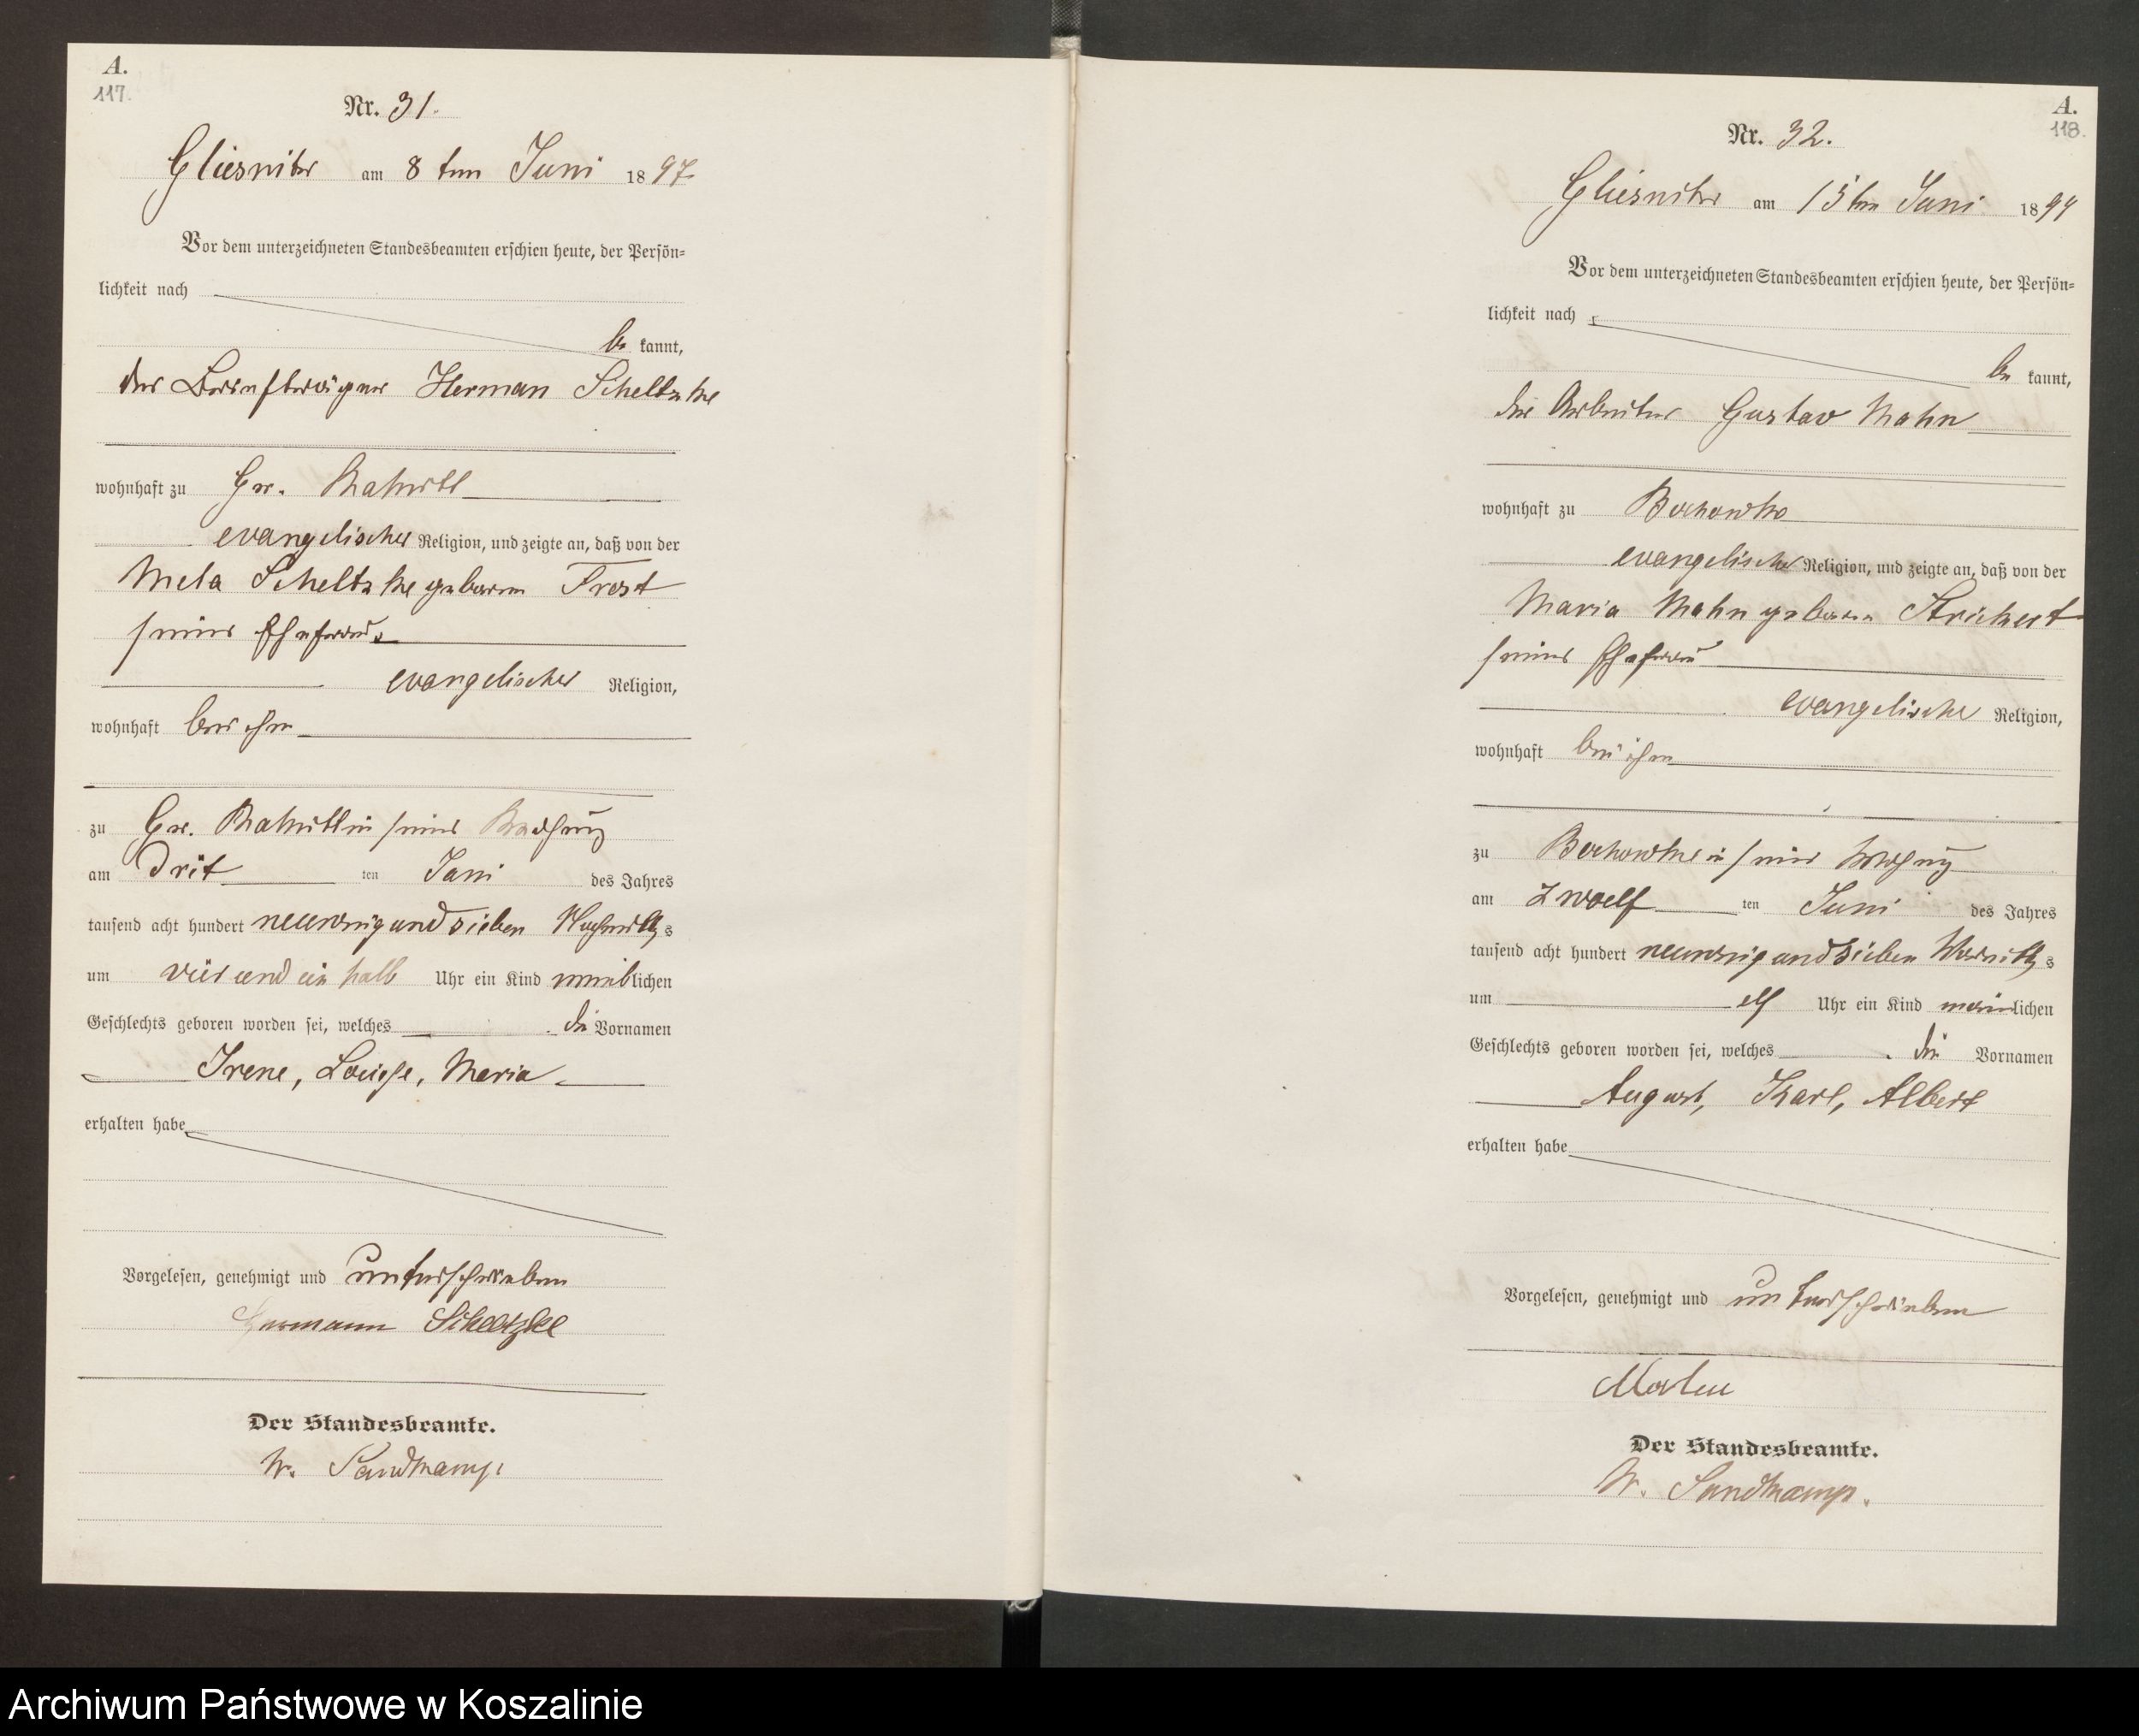 A.
117.
Nr. 31.
Gliesnitz am 8 ten Juni 1897
Vor dem unterzeichneten Standesbeamten erschien heute, der Persön=
lichkeit nach
be kannt,
der Briefträger Herman Scheltzke
wohnhaft zu Gr. Rakitt
evangelischer Religion, und zeigte an, daß von der
Meta Scheltzke geboren Frost
seiner Ehefrau
evangelischer Religion,
wohnhaft bei ihm
zu Gr. Rakitt in seiner Wohnung
am Drit ten Juni des Jahres
tausend acht hundert neunzig und sieben Nachmittags
um vier und ein halb Uhr ein Kind weiblichen
Geschlechts geboren worden sei, welches die Vornamen
Irene, Louise, Maria
erhalten habe
Vorgelesen, genehmigt und unterschrieben
Hermann Scheltzke
Der Standesbeamte.
W. Sandkamp
A.
118.
Nr. 32.
Gliesnitz am 15ten Juni 1897
Vor dem unterzeichneten Standesbeamten erschien heute, der Persön=
lichkeit nach
be kannt,
der Arbeiter Gustav Mahn
wohnhaft zu Bochowke
evangelischer Religion, und zeigte an, daß von der
Maria Mahn geboren Strichert
seiner Ehefrau
evangelische Religion,
wohnhaft bei ihm
zu Bochowke in seiner Wohnung
am Zwoelf ten Juni des Jahres
tausend acht hundert neunzig und sieben Vormittags
um elf Uhr ein Kind männlichen
Geschlechts geboren worden sei, welches die Vornamen
August, Karl, Albert
erhalten habe
Vorgelesen, genehmigt und unterschrieben
Der Standesbeamte.
W. Sandkamp.
Archiwum Państwowe w Koszalinie